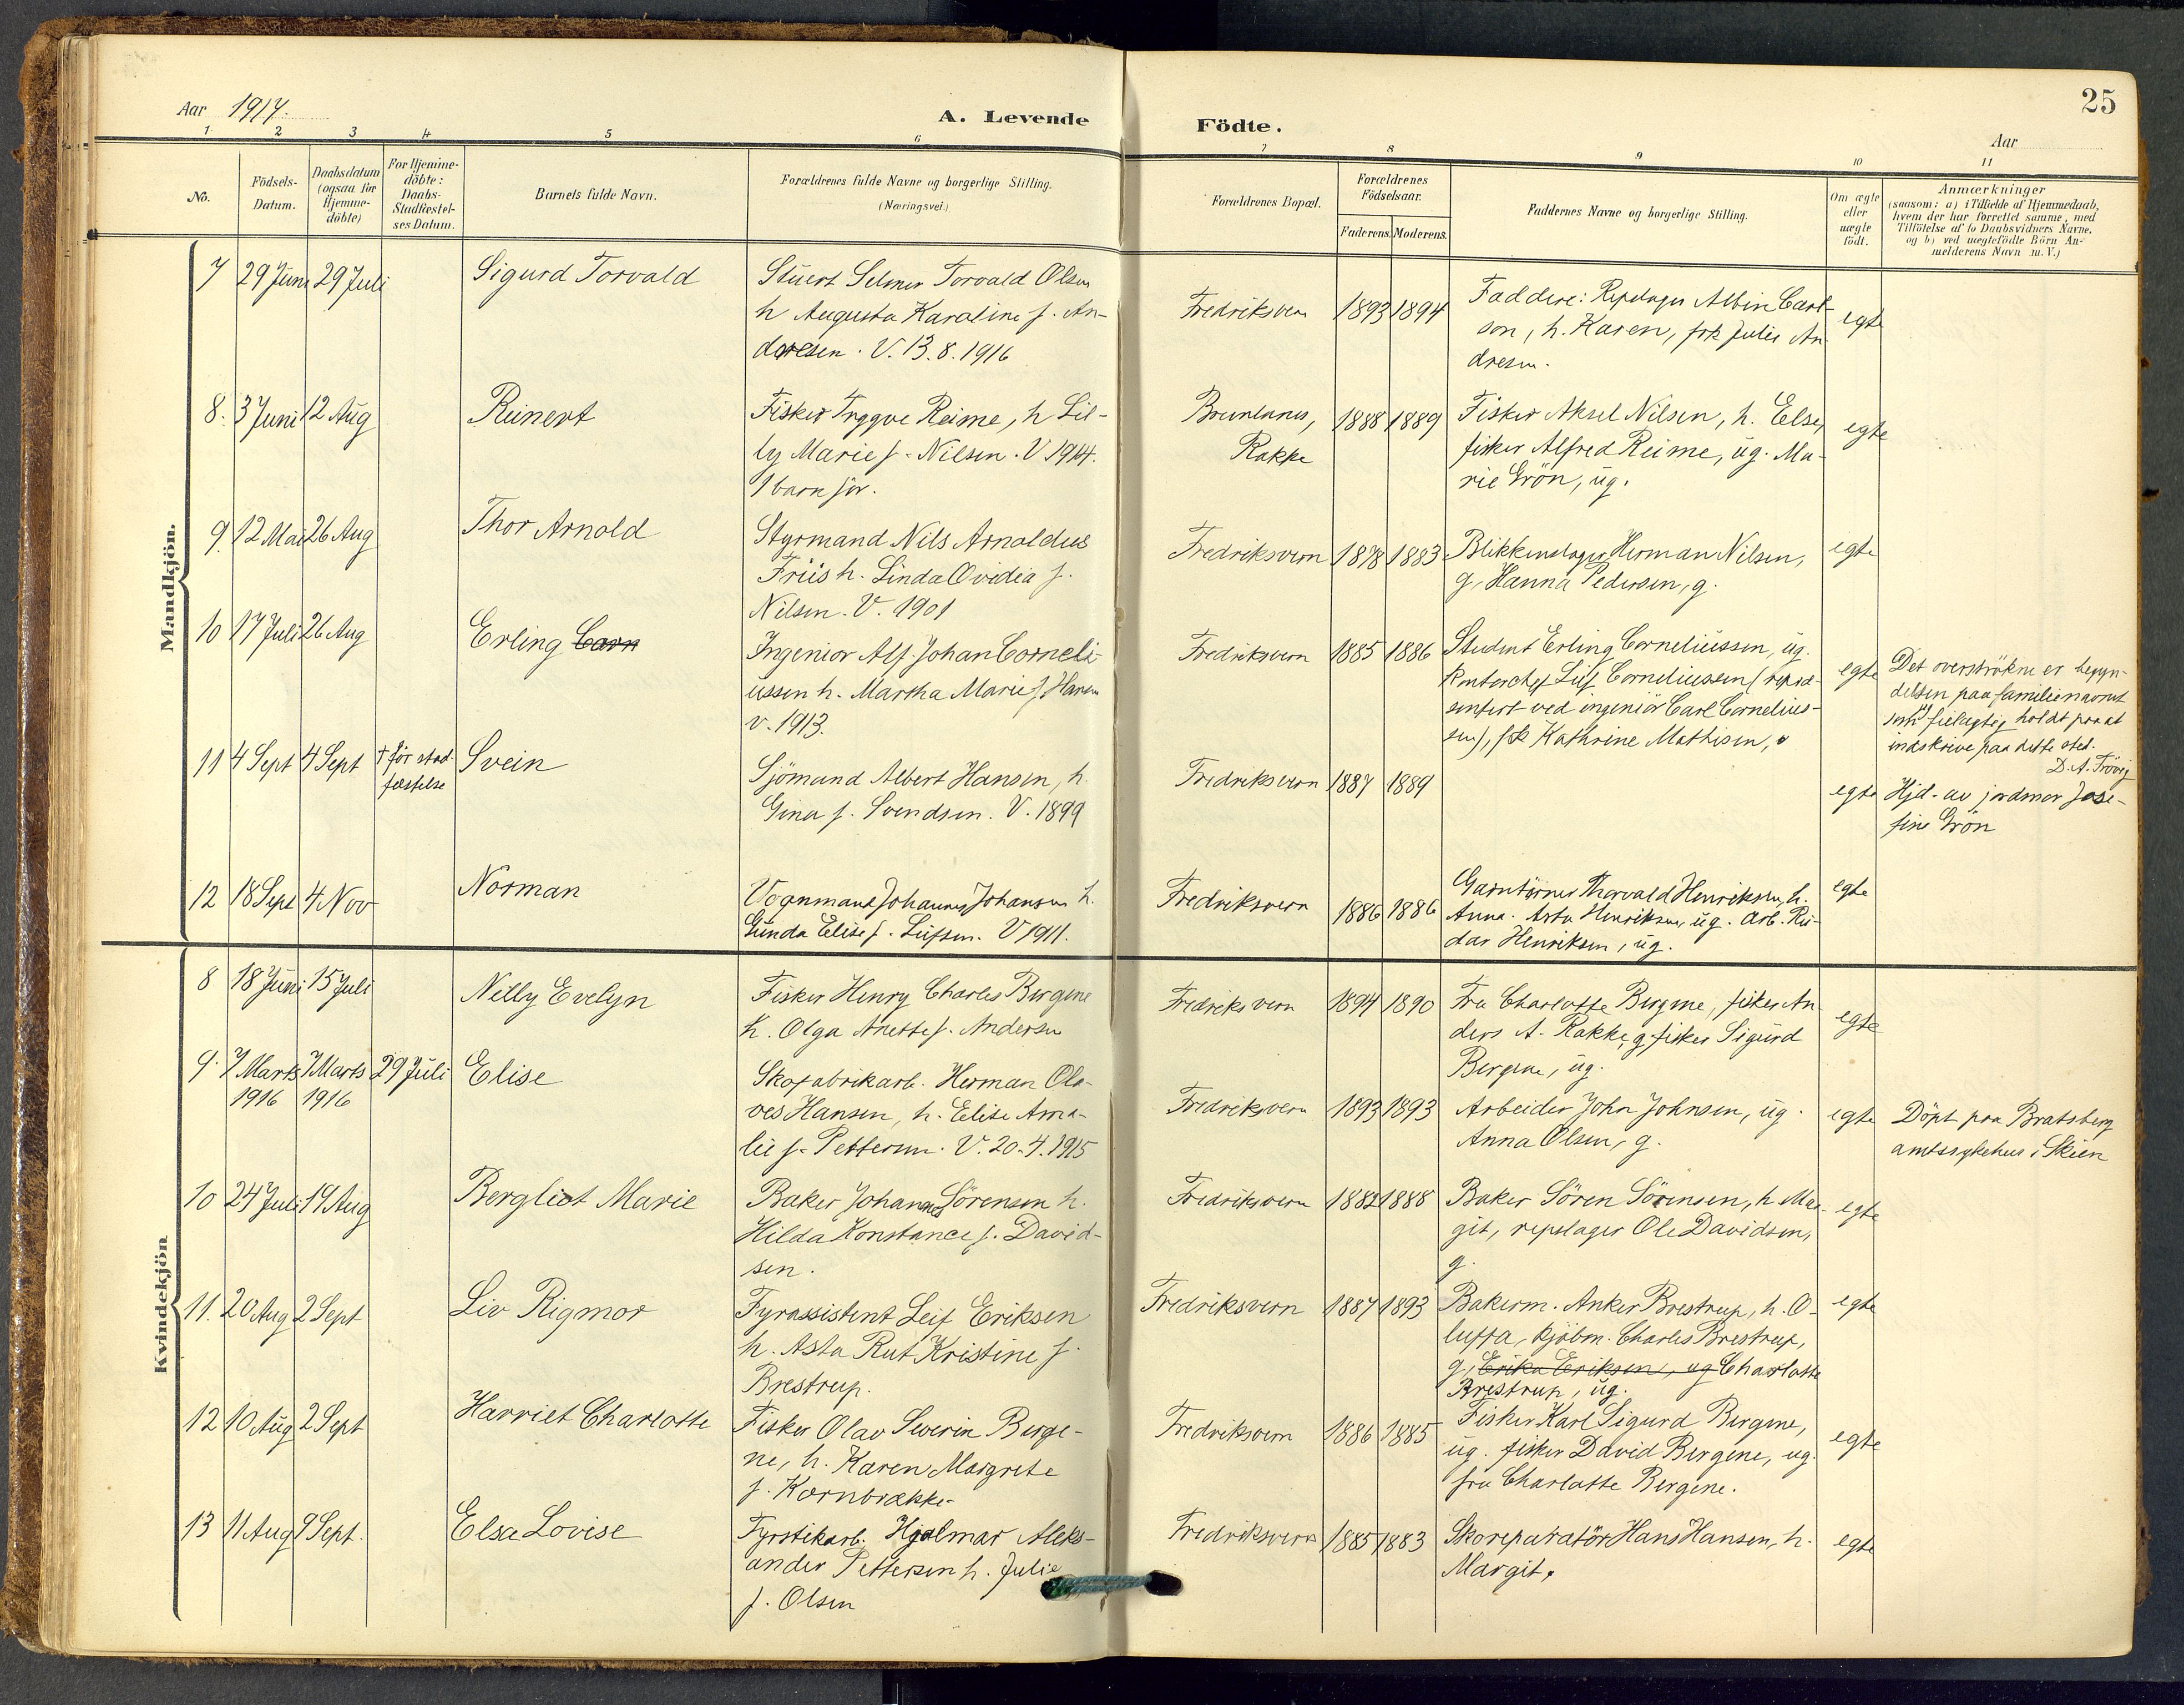 Aar 1917.
A. Levende
Födte.
25
Aar
1 2 3 4 5 6 7 8 9 10 11
No.
Födsels-
Datum.
Daabsdatum
(ogsaa for
Hjemme-
döbte)
For Hjemme-
döbte:
Daabs-
Stadfæstel-
ses Datum.
Barnets fulde Navn.
Forældrenes fulde Navne og borgerlige Stilling.
(Næringsvei.)
Forældrenes Bopæl.
Forældrenes
Födselsaar.
Faderens. Moderens.
Faddernes Navne og borgerlige Stilling.
Om ægte
eller
uægte
födt.
Anmærkninger
(saasom: a) i Tilfælde af Hjemmedaab,
hvem der har forrettet samme, med
Tilföielse af to Daabsvidners Navne.
og b) ved uægtefödte Börn An-
melderens Navn m. V.)
Mandkjön.
7 29 Juni 29 Juli Sigurd Torvald
Stuert Selmer Torvald Olsen
h Augusta Karoline f. An-
dresen. V. 13.8.1916
Fredriksvern 1893 1894
Faddere: Repslager Albin Carl-
son, h. Karen, frk Julie An
dresen.
egte
8. 3 Juni 12 Aug Reinert
Fisker Tryggve Reime, h Lil-
ly Marie f. Nilsen. V 1914.
1 barn för.
Brunlanes,
Rakke
1888 1889
Fisker Aksel Nilsen, h. Else,
fisker Alfred Reime, ug. Ma-
rie Grön, ug.
egte
9. 12 Mai 26 Aug Thor Arnold
Styrmand Nils Arnoldus
Friis h. Linda Ovidia f.
Nilsen. V. 1901
Fredriksvern 1878 1883
Blikkenslager Herman Nilsen,
g, Hanna Pedersen, g.
egte
10 17 Juli 26 Aug Erling Corn
Ingeniör Alf Johan Corneli-
ussen h. Martha Marie f. Hansen
v. 1913.
Fredriksvern 1885 1886
Student Erling Corneliussen, ug.
Kontorchef Leif Corneliussen (repræ-
sentert ved ingeniör Carl Cornelius-
sen), frk Kathrine Mathisen,
egte
Det overströkne er begyn-
delsen paa familienavnet
som feilagtig holdt paa at
indskrive paa dette sted.
D. A. Frövig
11 4 Sept 4 Sept † för stad-
fæstelse
Svein
Sjömand Albert Hansen, h.
Gina f. Svendsen. V. 1899
Fredriksvern 1887 1889
egte
Hjd. av jordmor Jose-
fine Grön
12 18 Sept 4 Nov Norman
Vognmand Johannes Johansen h.
Gunda Elise f. Leifsen. V 1911.
Fredriksvern 1886 1886
Garntörner Thorvald Henriksen, h.
Anna. Asta Henriksen, ug. Arb. Rei-
dar Henriksen, ug.
egte
Kvindekjön
8 18 Juni 15 Juli Nelly Evelyn
Fisker Henry Charles Bergene
h. Olga Anette f. Andersen
Fredriksvern 1894 1890
Fru Charlotte Bergene, fisker An
ders A. Rakke, g fisker Sigurd
Bergene, ug.
egte
9. 7 Marts 7 Marts 29 Juli Elise
1916 1916
Skofabrikarb. Herman Ola-
ves Hansen, h. Elise Ama-
lie f. Pettersen. V. 20.4.1915
Fredriksvern 1893 1893
Arbeider John Johnsen, ug.
Anna Olsen, g.
egte
Döpt paa Bratsberg
amtssykehus i Skien
10 24 Juli 19 Aug Bergliot Marie
Baker Johannes Sörensen h.
Hilda Konstance f. David-
sen.
Fredriksvern 1882 1888
Baker Sören Sörensen, h Mar-
git, repslager Ole Davidsen,
g.
egte
11. 20 Aug 2 Sept Liv Rigmor
Fyrassistent Leif Eriksen
h. Asta Rut Kristine f.
Brestrup.
Fredriksvern 1887 1893
Bakerm. Anker Brestrup, h. O-
luffa, kjöbm. Charles Brestrup,
g, Erika Eriksen, ug Charlotte
Brestrup, ug.
egte
12 10 Aug 2 Sept Harriet Charlotte
Fisker Olav Severin Berge-
ne, h. Karen Margrete
f. Kornbrække.
Fredriksvern 1886 1885
Fisker Karl Sigurd Bergene,
ug. fisker David Bergene, ug.
fru Charlotte Bergene.
egte
13 11 Aug 9 Sept. Elsa Lovise
Fyrstikarb. Hjalmar Aleks-
ander Pettersen h. Julie
f. Olsen
Fredriksvern 1885 1883
Skoreparatör Hans Hansen, h.
Margit.
egte